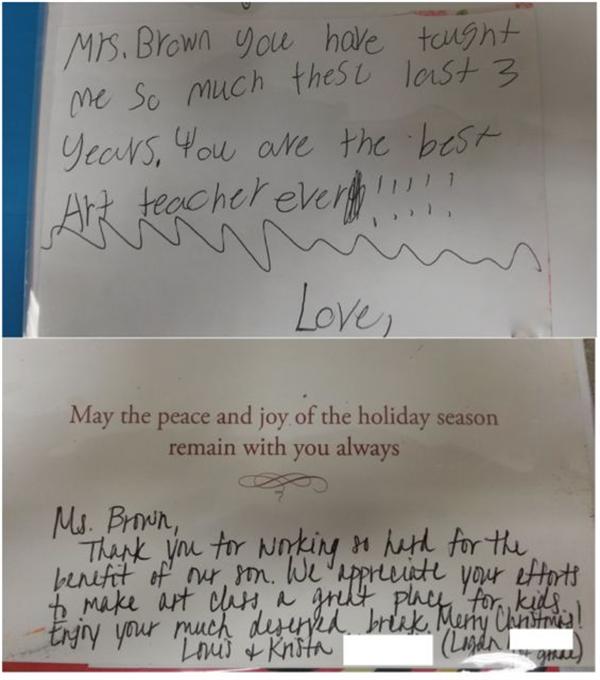 Mrs. Brown you have taught
me so much these last 3
years. You are the best
Art teacher ever!!!!!
Love,
May the peace and joy of the holiday season
remain with you always
Ms. Brown,
Thank you for working so hard for the
benefit of our son. We appreciate your efforts
to make art class a great place for kids.
Enjoy your much deserved break. Merry Christmas!
Louis & Krista (Logan
grade)